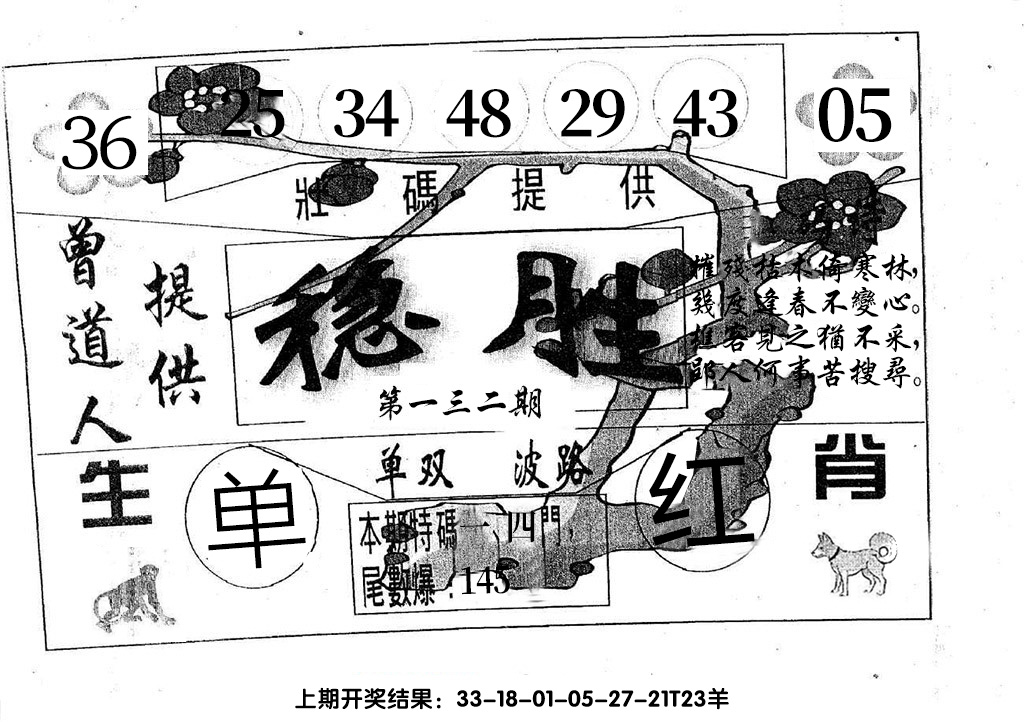 36 25 34 48 29 43 05
壯碼提供
曾道人
提供
稳胜
第一三二期
特
摧殘枯木倚寒林，
幾度逢春不變心。
樵客見之猶不采，
郢人何事苦搜尋。
单双 波路
生肖
单
红
本期特碼一、四門，
尾數爆：145
上期开奖结果：33-18-01-05-27-21T23羊